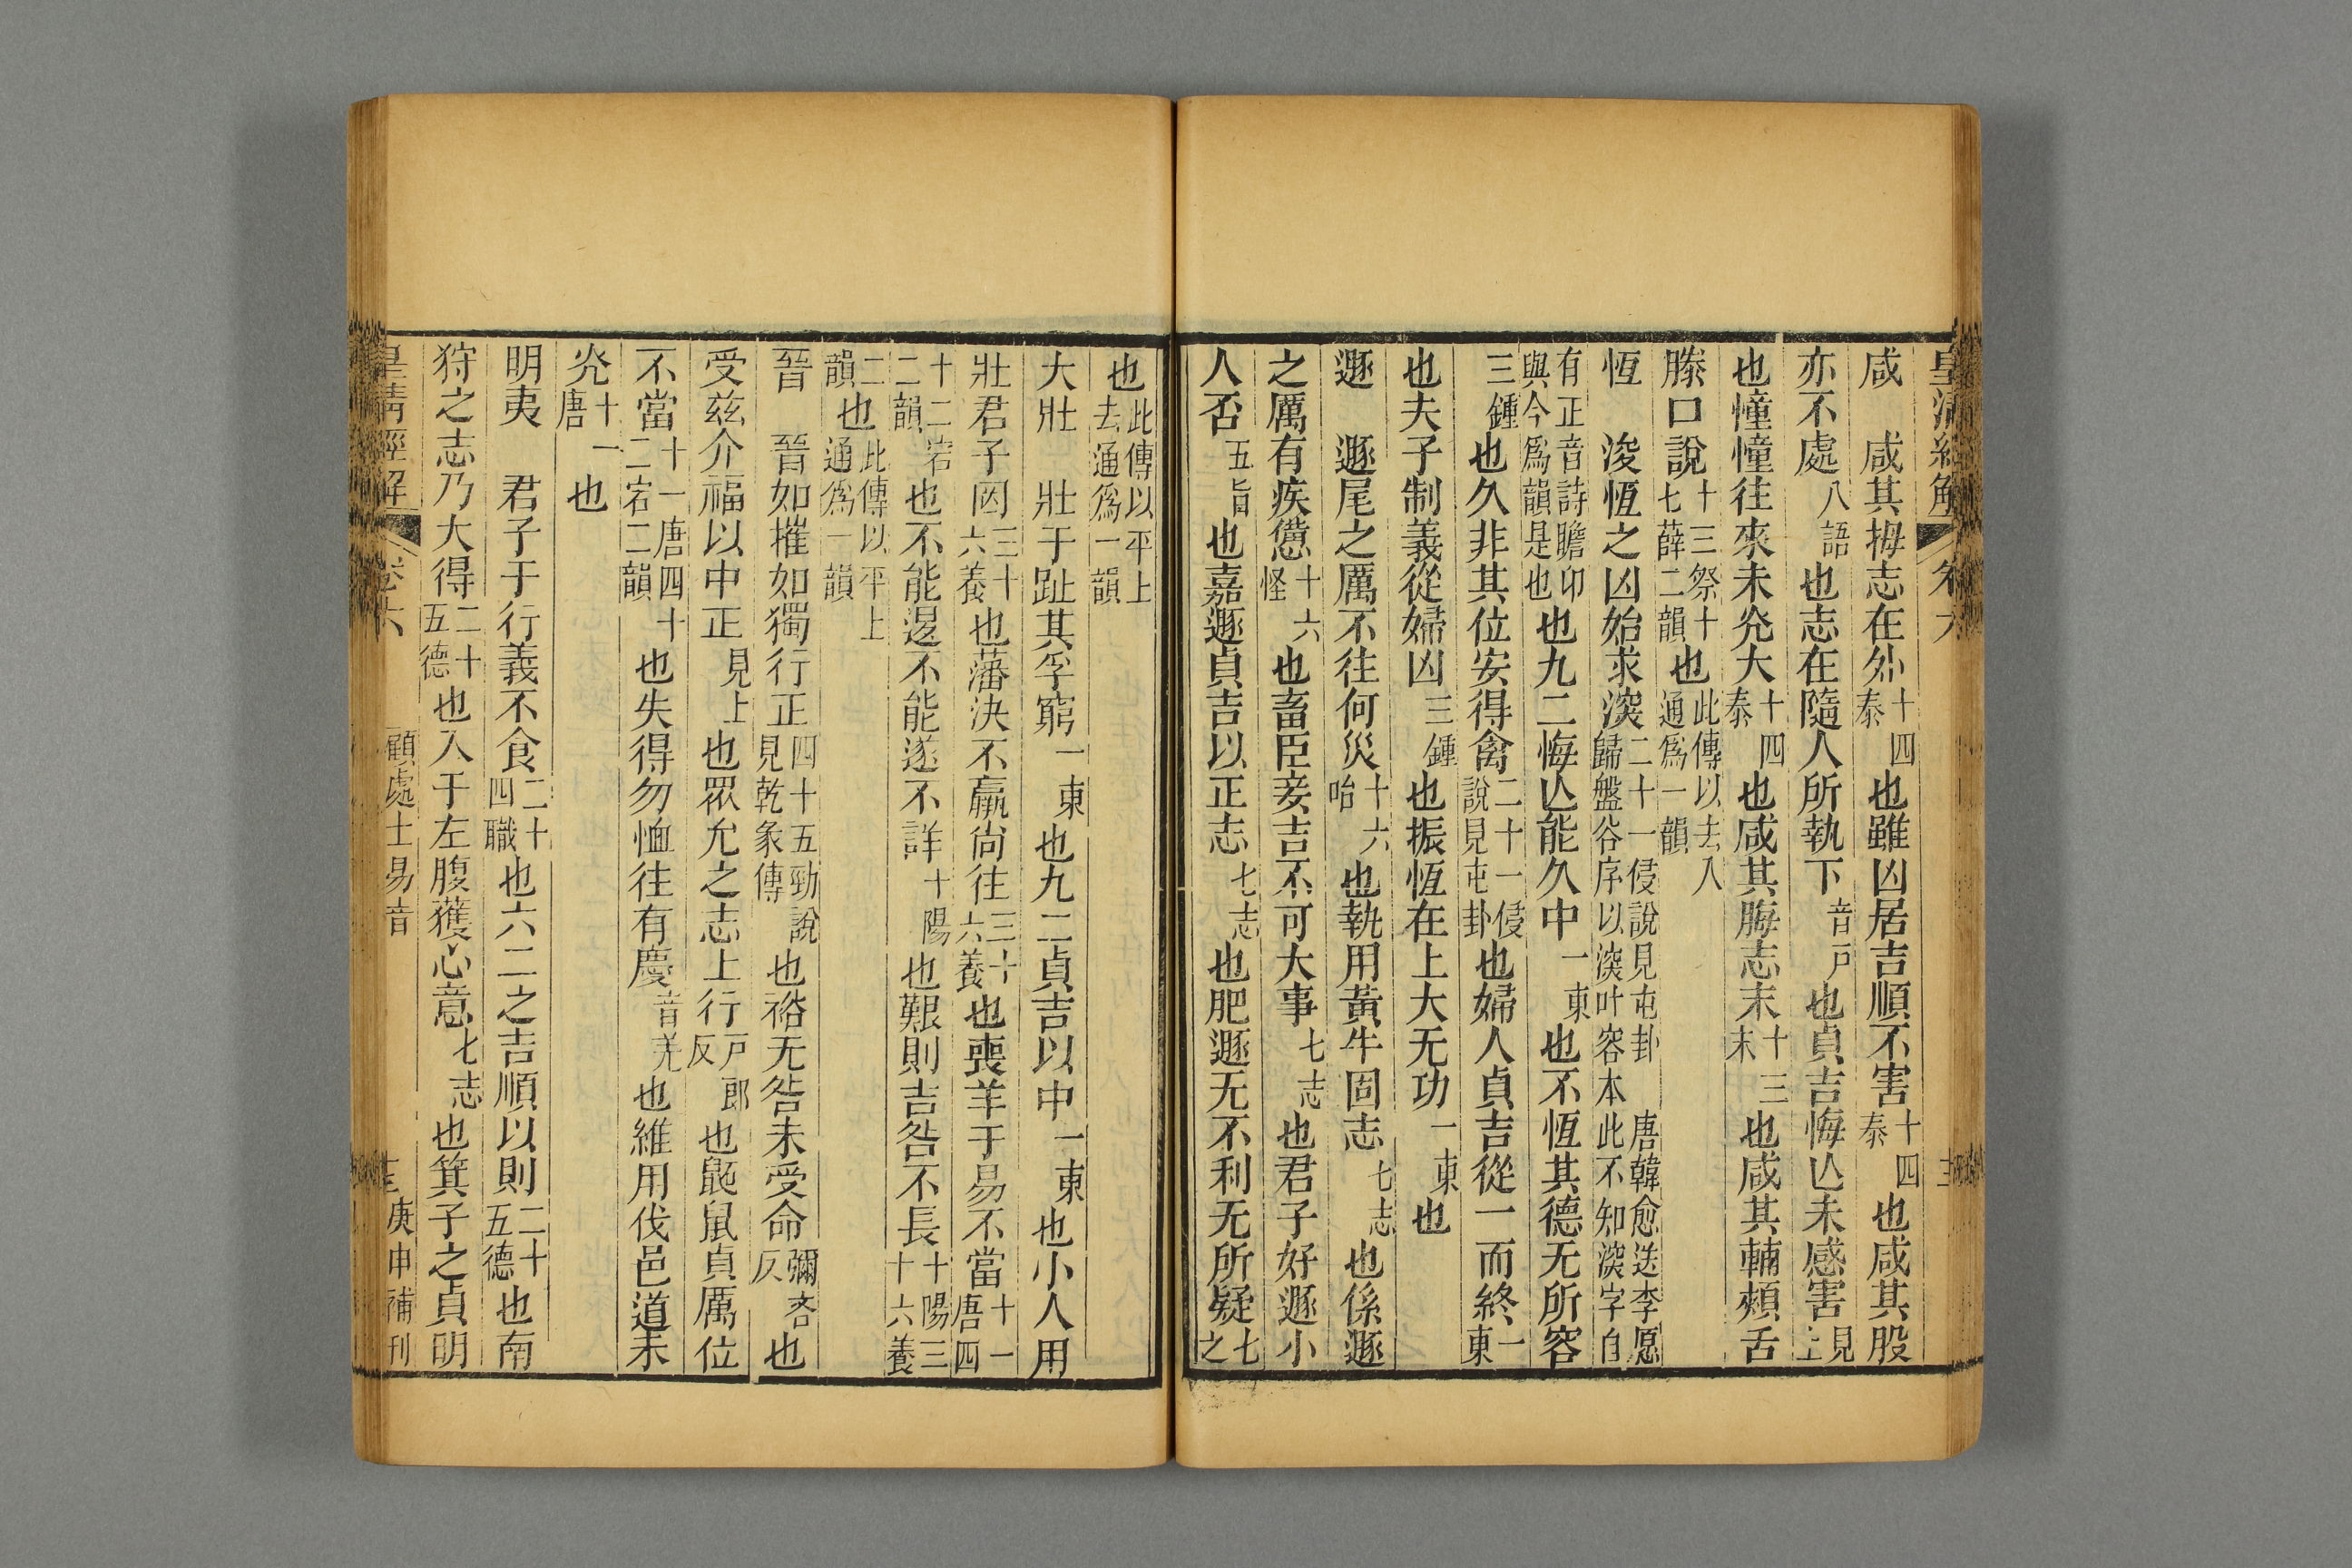 皇清經解 卷六
咸 咸其拇志在外十四泰也雖凶居吉順不害十四泰也咸其股
亦不處八語也志在隨人所執下音戶也貞吉悔亾未感害見上
也憧憧往來未光大十四泰也咸其脢志末十三末也咸其輔頰舌
滕口說十三祭十七薛二韻也此傳以去入通爲一韻
恆 浚恆之凶始求深二十一侵說見屯卦 唐韓愈送李愿歸盤谷序以深叶容本此不知深字自
有正音詩瞻卬與今爲韻是也也九二悔亾能久中一東也不恆其德无所容
三鍾也久非其位安得禽二十一侵說見屯卦也婦人貞吉從一而終一東
也夫子制義從婦凶三鍾也振恆在上大无功一東也
遯 遯尾之厲不往何災十六咍也執用黃牛固志七志也係遯
之厲有疾憊十六怪也畜臣妾吉不可大事七志也君子好遯小
人否五旨也嘉遯貞吉以正志七志也肥遯无不利无所疑七之
也此傳以平上去通爲一韻
大壯 壯于趾其孚窮一東也九二貞吉以中一東也小人用
壯君子罔三十六養也藩決不羸尚往三十六養也喪羊于易不當十一唐四
十二宕二韻也不能退不能遂不詳十陽也艱則吉咎不長十陽三十六養
二韻也此傳以平上通爲一韻
晉 晉如摧如獨行正四十五勁說見乾彖傳也裕无咎未受命彌吝反也
受兹介福以中正見上也眾允之志上行戸郎反也鼫鼠貞厲位
不當十一唐四十二宕二韻也失得勿恤往有慶音羌也維用伐邑道未
光十一唐也
明夷 君子于行義不食二十四職也六二之吉順以則二十五德也南
狩之志乃大得二十五德也入于左腹獲心意七志也箕子之貞明
皇清經解 卷六 顧處士易音 庚申補刊